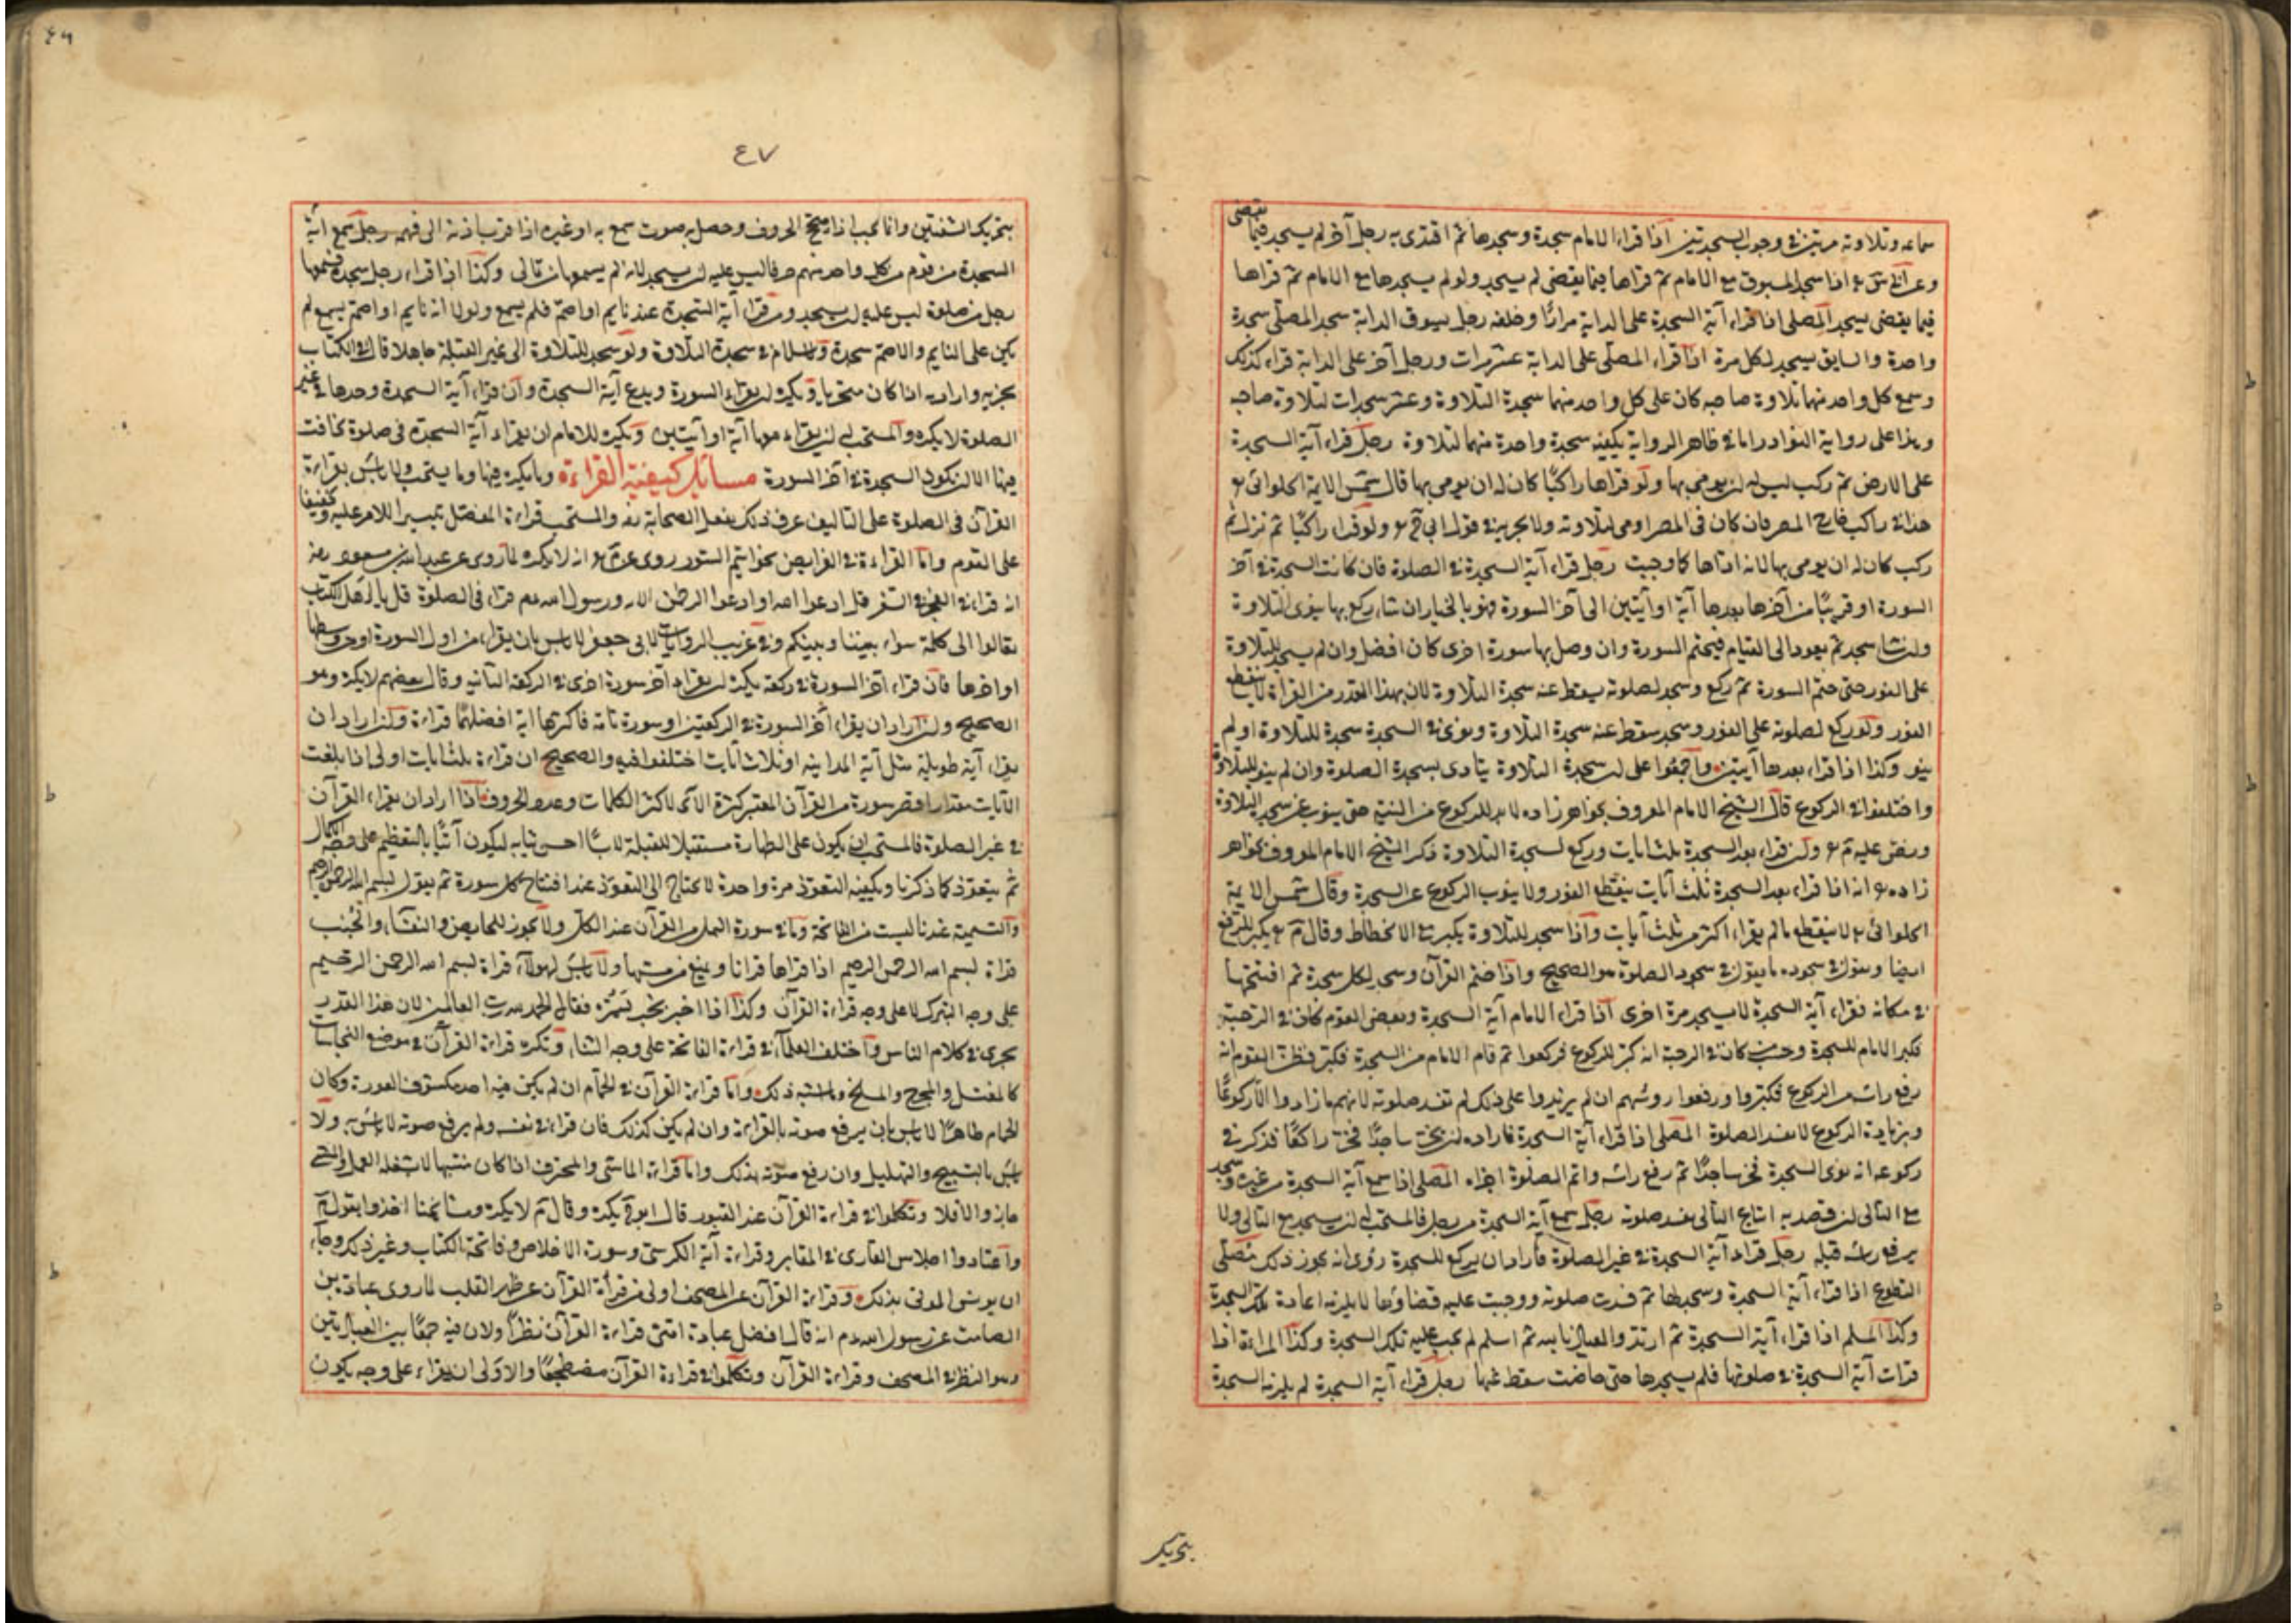 سماعه وتلاوته مرتين في وجوب السجدتين اذا قراء الامام سجدة وسجدها ثم اقتدى به رجل آخر لم يسجد فيما يقضى
اذا سجد المسبوق مع الامام ثم قراها فيما يقضى لم يسجد ولو لم يسجدها مع الامام ثم قراها
فيما يقضى يسجد المصلى اذا قراء آية السجدة على الدابة مرارًا وخلفه رجل يسوق الدابة سجد المصلى سجدة
واحدة والسايق يسجد لكل مرة اذا قراء المصلى على الدابة عشر مرات ورجل آخر على الدابة قراء كذلك
وسمع كل واحد منهما تلاوة صاحبه كان على كل واحد منهما سجدة التلاوة وعشر سجدات لتلاوة صاحبه
وهذا على رواية النوادر اما في ظاهر الرواية يكفيه سجدة واحدة منهما لتلاوة رجل قراء آية السجدة
على الارض ثم ركب ليس له ان يومى بها ولو قراها راكبًا كان له ان يومى بها قال شمس الايمة الحلوائى
هذا في راكب خارج المصر فان كان في المصر اومى لتلاوته ولا يجزيه في قول ولو قراء راكبًا ثم نزل ثم
ركب كان له ان يومى بها لانه اداها كما وجبت رجل قراء آية السجدة في الصلوة فان كانت السجدة في آخر
السورة او قريبًا من آخرها بعدها آية او آيتين الى آخر السورة فهو بالخيار ان شاء ركع بها ينوى التلاوة
وان شاء سجد ثم يعود الى القيام فيختم السورة وان وصل بها سورة اخرى كان افضل وان لم يسجد للتلاوة
على الفور حتى ختم السورة ثم ركع وسجد لصلوته يسقط عنه سجدة التلاوة لان بهذا القدر من القراة لا ينقطع
الفور ولو ركع لصلوته على الفور وسجد سقط عنه سجدة التلاوة ونوى في السجدة سجدة للتلاوة او لم
ينو وكذا اذا قراء بعدها آيتين واجمعوا على ان سجدة التلاوة يتادى بسجدة الصلوة وان لم ينو للتلاوة
واختلفوا في الركوع قال الشيخ الامام المعروف بخواهر زاده لا بد للركوع من النية حتى ينوب عن سجدة التلاوة
ونص عليه وان قراء بعد السجدة ثلث ايات وركع لسجدة التلاوة ذكر الشيخ الامام المعروف بخواهر
زاده انه اذا قراء بعد السجدة ثلث آيات ينقطع الفور ولا ينوب الركوع عن السجدة وقال شمس الايمة
الحلوائى لا ينقطع ما لم يقراء اكثر من ثلث آيات واذا سجد للتلاوة يكبر في الانحطاط وقال يكبر للرفع
ايضا ويقول في سجوده ما يقول في سجود الصلوة هو الصحيح واذا ختم القرآن وسجد لكل سجدة ثم افتتحها
في مكانه فقراء آية السجدة لا يسجد مرة اخرى اذا قراء الامام آية السجدة وبعض القوم كان في الرحبة
فكبر الامام للسجدة وحسب من كان في الرحبة انه كبر للركوع فركعوا ثم قام الامام من السجدة فكبر فظن القوم انه
رفع راسه من الركوع فكبروا ورفعوا روسهم ان لم يزيدوا على ذلك لم تفسد صلوته لانهم ما زادوا الا ركوعًا
وبزيادة الركوع لا تفسد الصلوة المصلى اذا قراء آية السجدة فاراد ان يخر ساجدًا فخر راكعًا فذكر في
ركوعه انه نوى السجدة فخر ساجدًا ثم رفع راسه واتم الصلوة اجزاه المصلى اذا سمع آية السجدة من غيره وسجد
مع التالى ان قصد به اتباع التالى تفسد صلوته رجل سمع آية السجدة من رجل فالمستحب له ان يسجد مع التالى ولا
يرفع راسه قبله رجل قراء آية السجدة في غير الصلوة فاراد ان يركع للسجدة روى انه يجوز ذلك مصلى
التطوع اذا قراء آية السجدة وسجد لها ثم فسدت صلوته ووجبت عليه قضاؤها لا يلزمه اعادة تلك السجدة
وكذا المسلم اذا قراء آية السجدة ثم ارتد والعياذ بالله ثم اسلم لم يجب عليه تلك السجدة وكذا المراءة اذا
قرات آية السجدة في صلوتها فلم يسجدها حتى حاضت سقط عنها رجل قراء آية السجدة لم يلزمه السجدة
بتحريك
٤٦
٤٧
بتحريك الشفتين وانما يجب اذا صحح الحروف وحصل به صوت سمع به او غيره اذا قرب اذنه الى فمه رجل سمع آية
السجدة من قوم من كل واحد منهم حرفا ليس عليه ان يسجد لانه لم يسمعها من تالى وكذا اذا قراء رجل سجدة فسمعها
رجل من صلوة ليس عليه ان يسجد ومن قراء آية السجدة عند نايم او اصم فلم يسمع ولولا انه نايم او اصم يسمع لم
يكن على النايم والاصم سجدة ولا سلام في سجدة التلاوة ولو سجد للتلاوة الى غير القبلة جاهلا قال في الكتاب
يجزيه واراد به اذا كان متحريا ويكره ان يقراء السورة ويدع آية السجدة وان قراء آية السجدة وحدها في غير
الصلوة لا يكره والمستحب له ان يقراء معها آية او آيتين ويكره للامام ان يقراء آية السجدة في صلوة يخافت
فيها الا ان يكون السجدة في آخر السورة مسائل كيفية القراءة وما يكره فيها وما يستحب ولا باس بقراءة
القرآن في الصلوة على التاليف عرف ذلك بفعل الصحابة والمستحب قراءة المفصل تيسيرا للامر عليه وتخفيفا
على القوم واما القراءة في الفرايض بخواتيم السور روى انه لا يكره لما روى عن عبد الله بن مسعود رضه
انه قراء في الفجر في السفر قل ادعوا الله او ادعوا الرحمن الآية ورسول الله عم قراء في الصلوة قل يا اهل الكتاب
تعالوا الى كلمة سواء بيننا وبينكم وفي غريب الروايات لابى جعفر لا باس بان يقراء من اول السورة او من وسطها
او اخرها فان قراء آخر السورة في ركعة يكره ان يقراء آخر سورة اخرى في الركعة الثانية وقال بعضهم لا يكره وهو
الصحيح وان اراد ان يقراء آخر السورة في الركعتين او سورة تامة فاكثرها آية افضلهما قراءة وان اراد ان
يقراء آية طويلة مثل آية المداينة او ثلاث آيات اختلفوا فيه والصحيح ان قراءة ثلث ايات اولى اذا بلغت
الآيات مقدار اقصر سورة من القرآن المعتبر كثرة الآى لا كثر الكلمات وعدد الحروف اذا اراد ان يقراء القرآن
في غير الصلوة فالمستحب ان يكون على الطهارة مستقبلا للقبلة لابسًا احسن ثيابه ليكون آتيًا بالتعظيم على وجه الكمال
ثم يتعوذ كما ذكرنا ويكفيه التعوذ مرة واحدة لا يحتاج الى التعوذ عند افتتاح كل سورة ثم يقول بسم الله الرحمن الرحيم
والتسمية عندنا ليست من الفاتحة وما في سورة النمل من القرآن عند الكل ولا يجوز للحايض والنفساء والجنب
قراءة بسم الله الرحمن الرحيم اذا قراها قرانا ويمنع من مسها ولا باس لهولاء قراة بسم الله الرحمن الرحيم
على وجه التبرك لا على وجه قراءة القرآن وكذا اذا اخبر بخبر يسره فقال الحمد لله رب العالمين لان هذا القدر
يجرى في كلام الناس واختلف العلماء في قراءة الفاتحة على وجه الثناء وتكره قراءة القرآن في موضع النجاسات
كالمغتسل والمسلخ وما اشبه ذلك واما قراءة القرآن في الحمام ان لم يكن فيه احد مكشوف العورة وكان
الحمام طاهرًا لا باس بان يرفع صوته بالقراءة وان لم يكن كذلك فان قراء في نفسه ولم يرفع صوته لا باس به ولا
باس بالتسبيح والتهليل وان رفع صوته بذلك واما قراءة الماشى والمحترف اذا كان منتبها لا يشغله العمل والمشى
جاز والا فلا وتكلموا في قراءة القرآن عند القبور قال يكره وقال لا يكره ومشايخنا اخذوا بقول
واعتادوا اجلاس القارى في المقابر وقراءة آية الكرسى وسورة الاخلاص وفاتحة الكتاب وغير ذلك رجاء
ان يونس الموتى بذلك وقراءة القرآن عن المصحف اولى من قراة القرآن عن ظهر القلب لما روى عبادة بن
الصامت عن رسول الله عم انه قال افضل عبادة امتى قراءة القرآن نظرًا ولان فيه جمعًا بين العبادتين
وهو النظر في المصحف وقراءة القرآن وتكلموا في قراءة القرآن مضطجعًا والاولى ان يقراء على وجه يكون